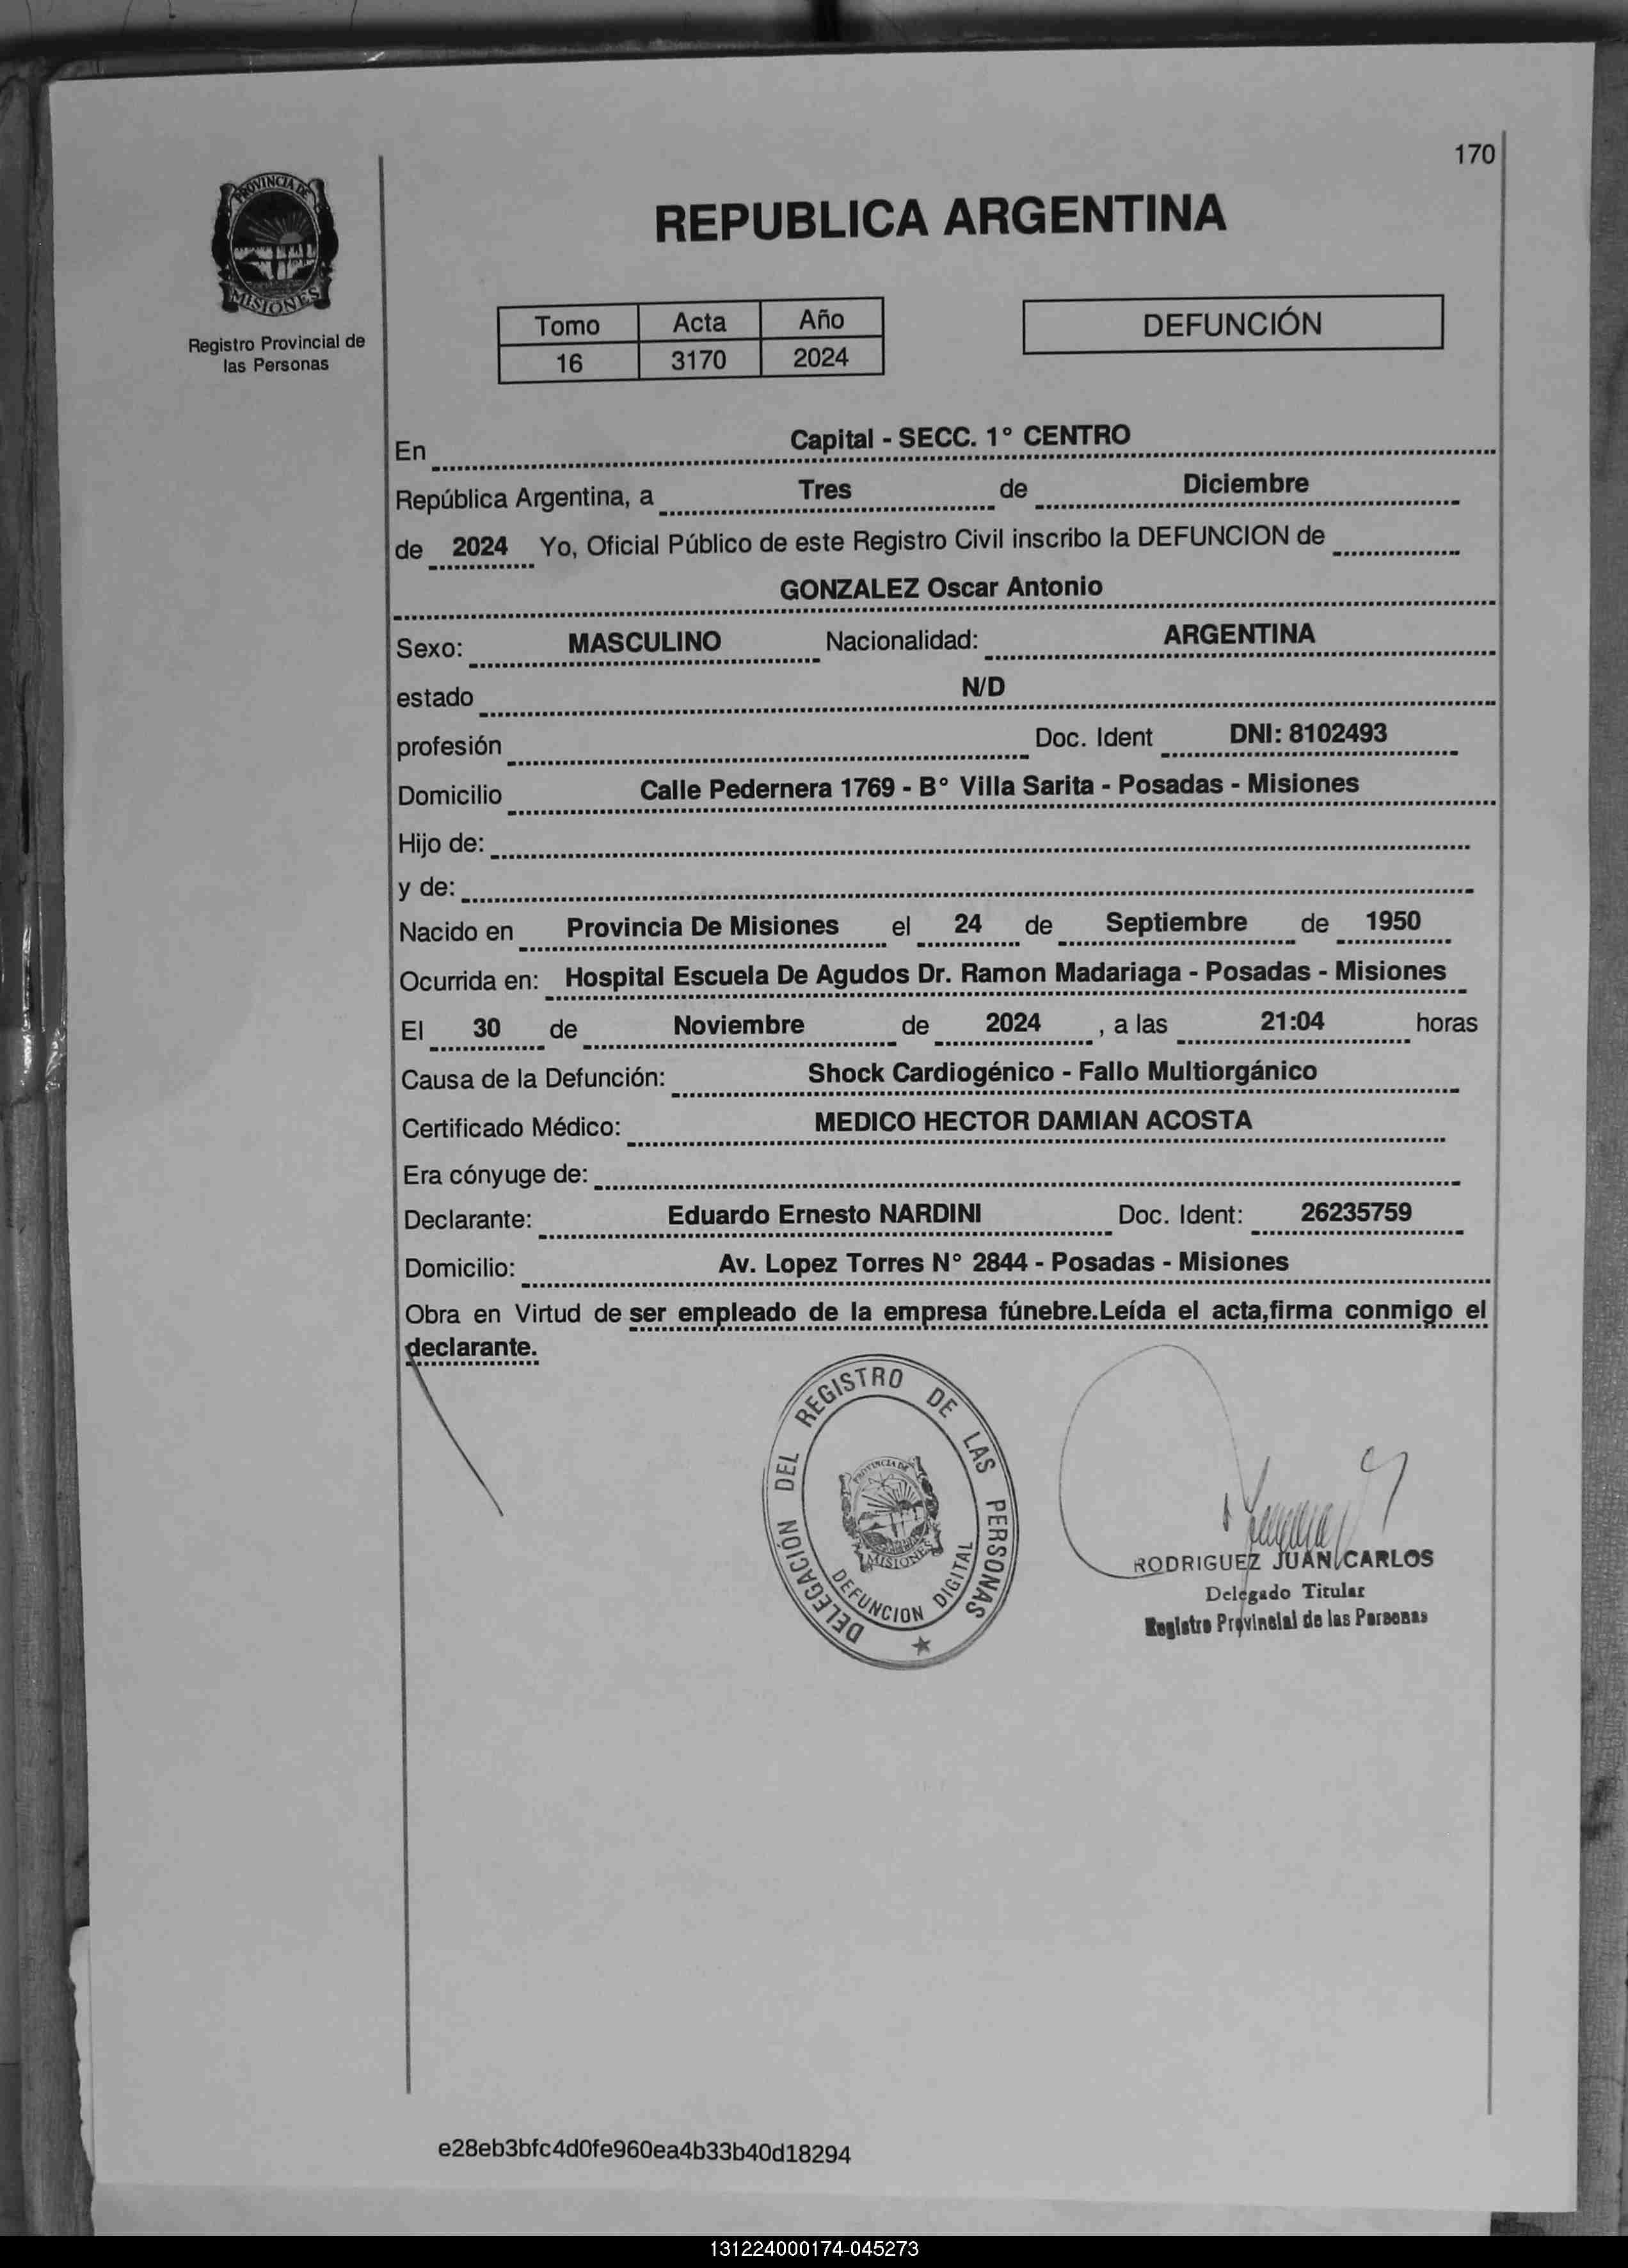 170
PROVINCIA DE
MISIONES
Registro Provincial de
las Personas
REPUBLICA ARGENTINA
Tomo Acta Año
16 3170 2024
DEFUNCIÓN
En Capital - SECC. 1° CENTRO
República Argentina, a Tres de Diciembre
de 2024 Yo, Oficial Público de este Registro Civil inscribo la DEFUNCION de
GONZALEZ Oscar Antonio
Sexo: MASCULINO Nacionalidad: ARGENTINA
estado N/D
profesión Doc. Ident DNI: 8102493
Domicilio Calle Pedernera 1769 - B° Villa Sarita - Posadas - Misiones
Hijo de:
y de:
Nacido en Provincia De Misiones el 24 de Septiembre de 1950
Ocurrida en: Hospital Escuela De Agudos Dr. Ramon Madariaga - Posadas - Misiones
El 30 de Noviembre de 2024 , a las 21:04 horas
Causa de la Defunción: Shock Cardiogénico - Fallo Multiorgánico
Certificado Médico: MEDICO HECTOR DAMIAN ACOSTA
Era cónyuge de:
Declarante: Eduardo Ernesto NARDINI Doc. Ident: 26235759
Domicilio: Av. Lopez Torres N° 2844 - Posadas - Misiones
Obra en Virtud de ser empleado de la empresa fúnebre.Leída el acta,firma conmigo el
declarante.
DELEGACIÓN DEL REGISTRO DE LAS PERSONAS
PROVINCIA DE
MISIONES
DEFUNCION DIGITAL
RODRIGUEZ JUAN CARLOS
Delegado Titular
Registro Provincial de las Personas
e28eb3bfc4d0fe960ea4b33b40d18294
131224000174-045273